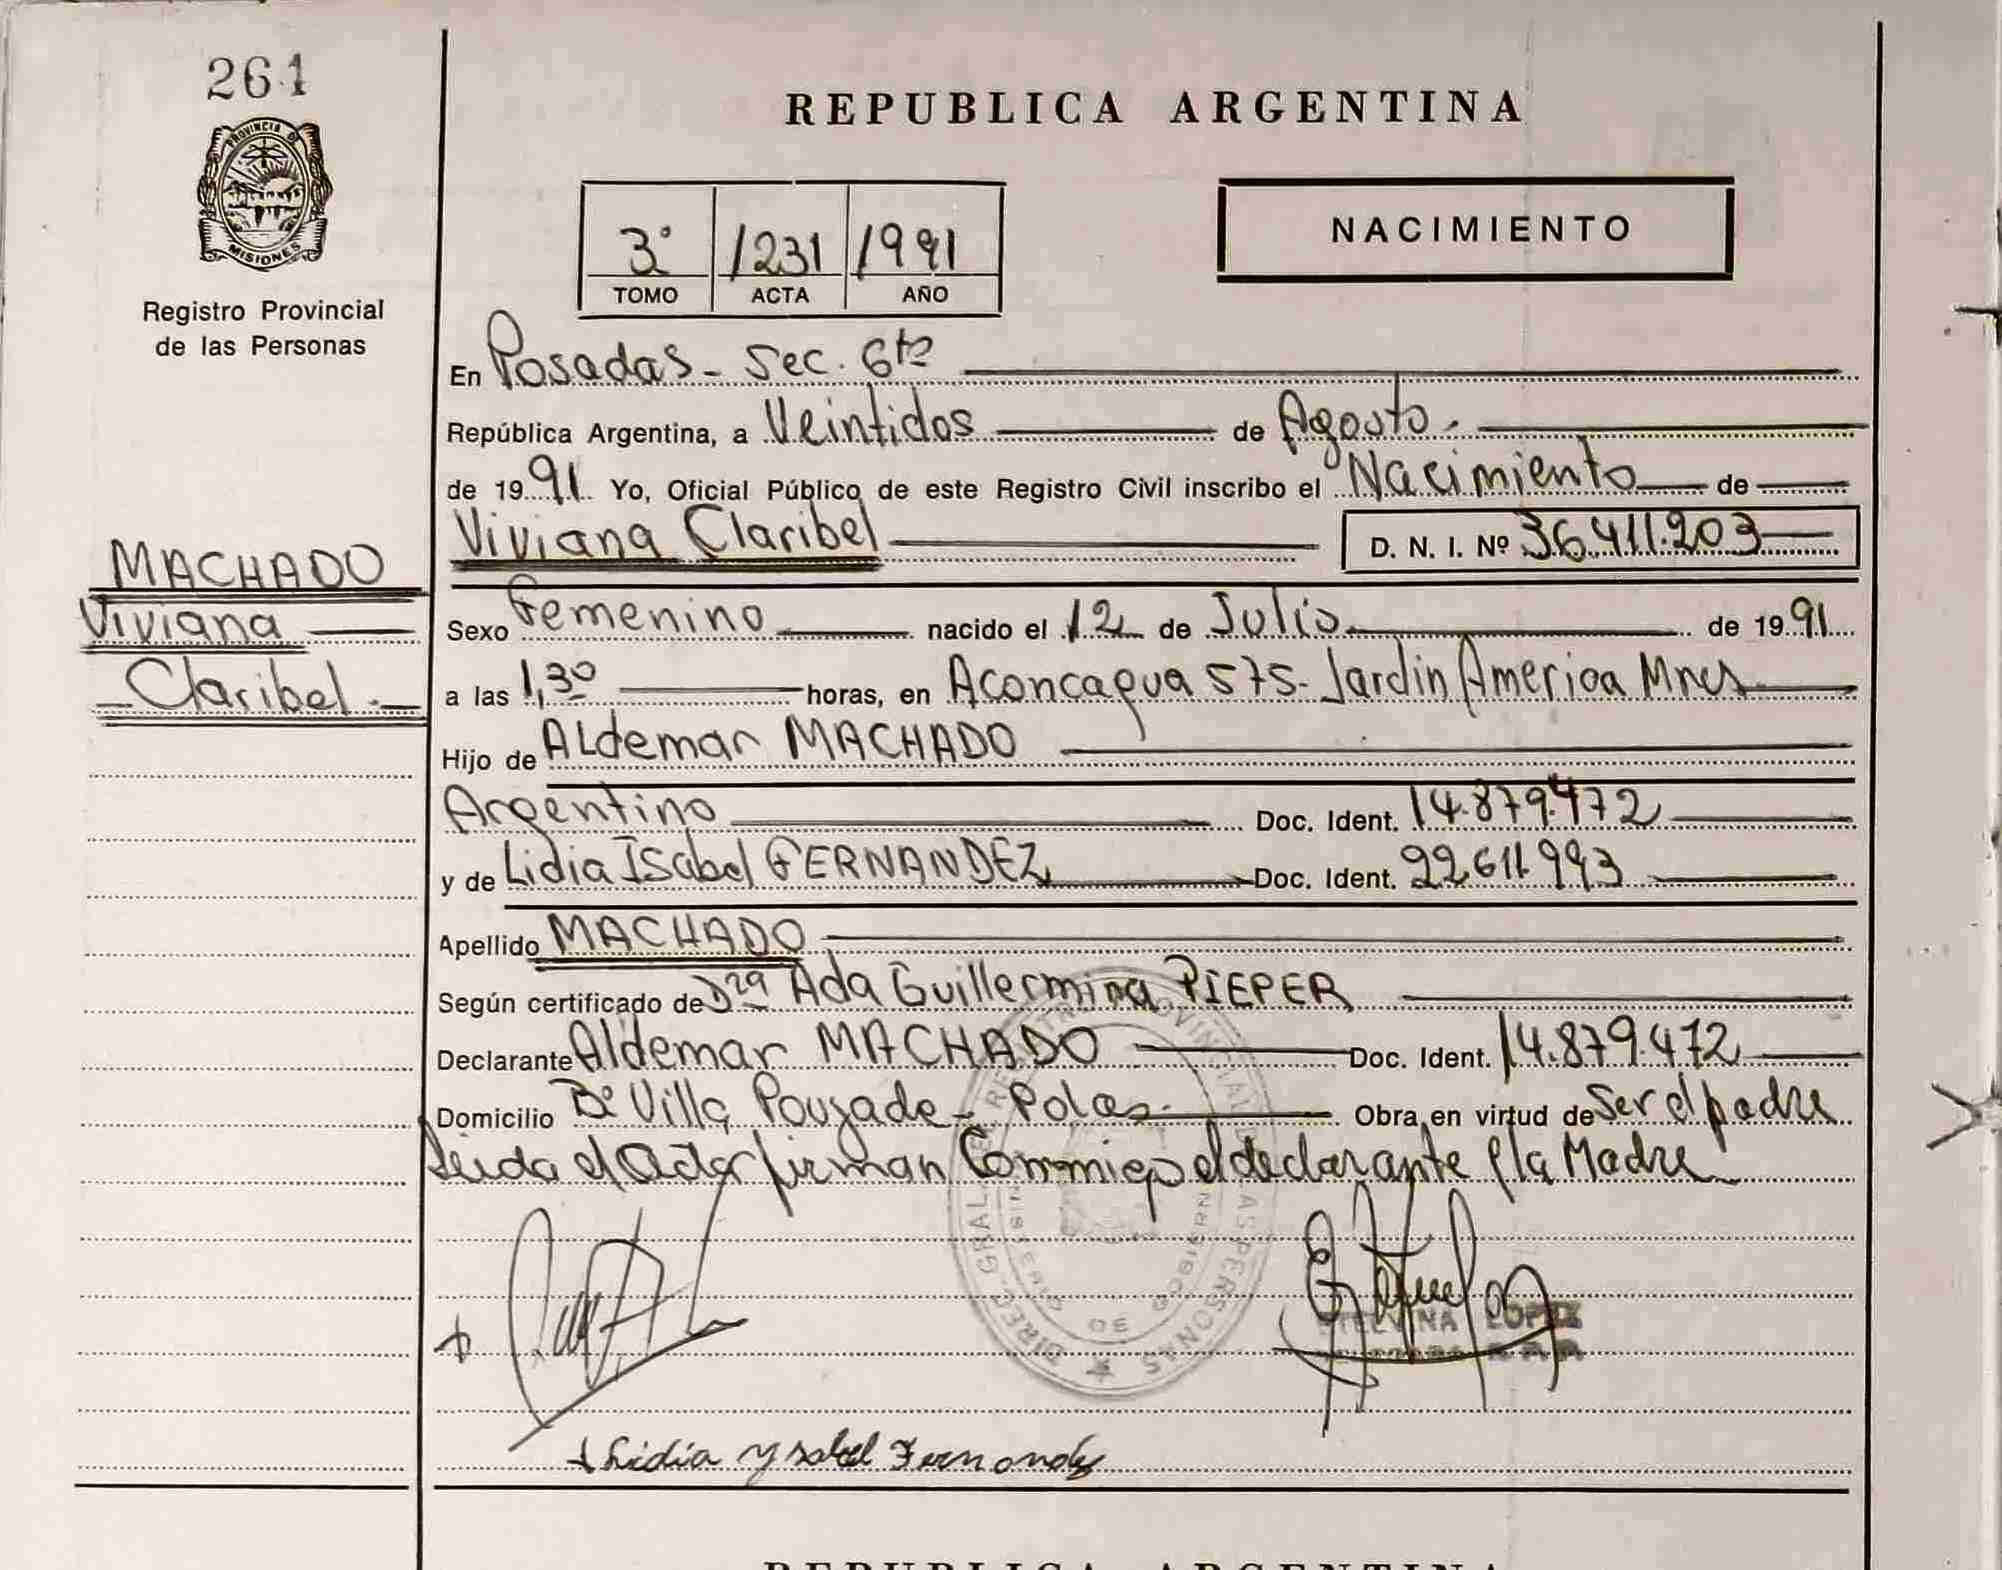 261
REPUBLICA ARGENTINA
PROVINCIA DE
MISIONES
Registro Provincial
de las Personas
NACIMIENTO
3º 1231 1991
TOMO ACTA AÑO
En Posadas - Sec. 6ta
República Argentina, a Veintidos de Agosto.
de 1991 Yo, Oficial Público de este Registro Civil inscribo el Nacimiento de
Viviana Claribel D. N. I. Nº 36.411.203
MACHADO
Viviana
Claribel.
Sexo Femenino nacido el 12 de Julio de 1991
a las 1,30 horas, en Aconcagua 575- Jardin America Mnes
Hijo de Aldemar MACHADO
Argentino Doc. Ident. 14.879.472
y de Lidia Isabel FERNANDEZ Doc. Ident. 22.611.993
Apellido MACHADO
Según certificado de Dra Ada Guillermina PIEPER
Declarante Aldemar MACHADO Doc. Ident. 14.879.472
Domicilio Bº Villa Pouzade - Pdas. Obra en virtud de Ser el padre
Leida el Acta firman Conmigo el declarante y la Madre
DIREC. GRAL. REGISTRO PROVINCIAL DE LAS PERSONAS
LOPEZ
Lidia Ysabel Fernandez
REPUBLICA ARGENTINA